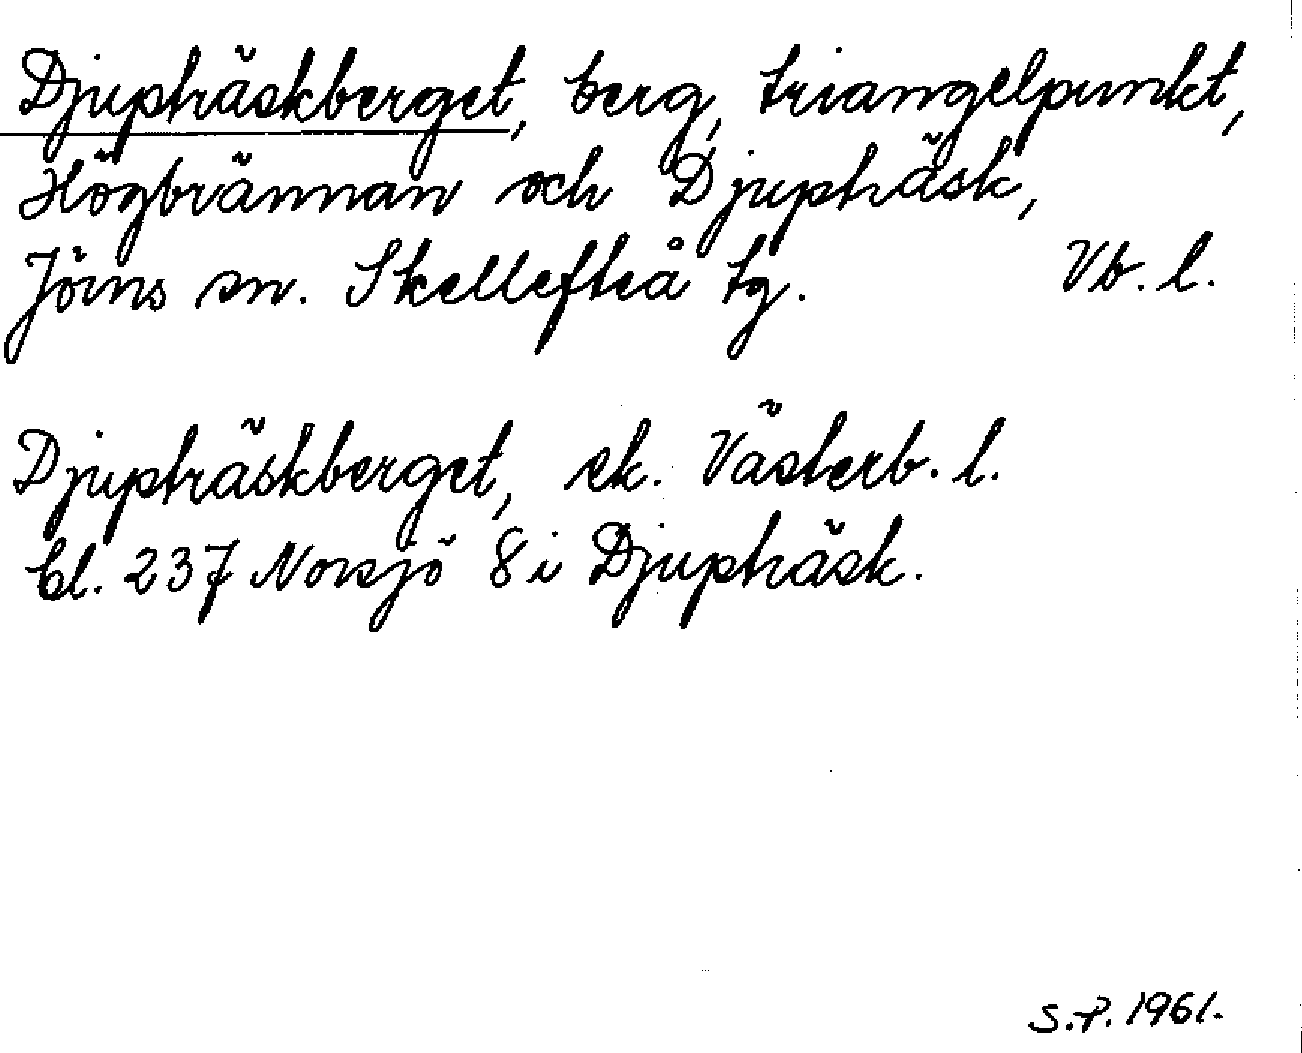 Djupträskberget, berg, triangelpunkt,
Högbrännan och Djupträsk,
Jörns sn. Skellefteå tg. Vb. l.
Djupträskberget, ek. Västerb. l.
bl. 237 Norsjö 8 i Djupträsk.
S.P. 1961.